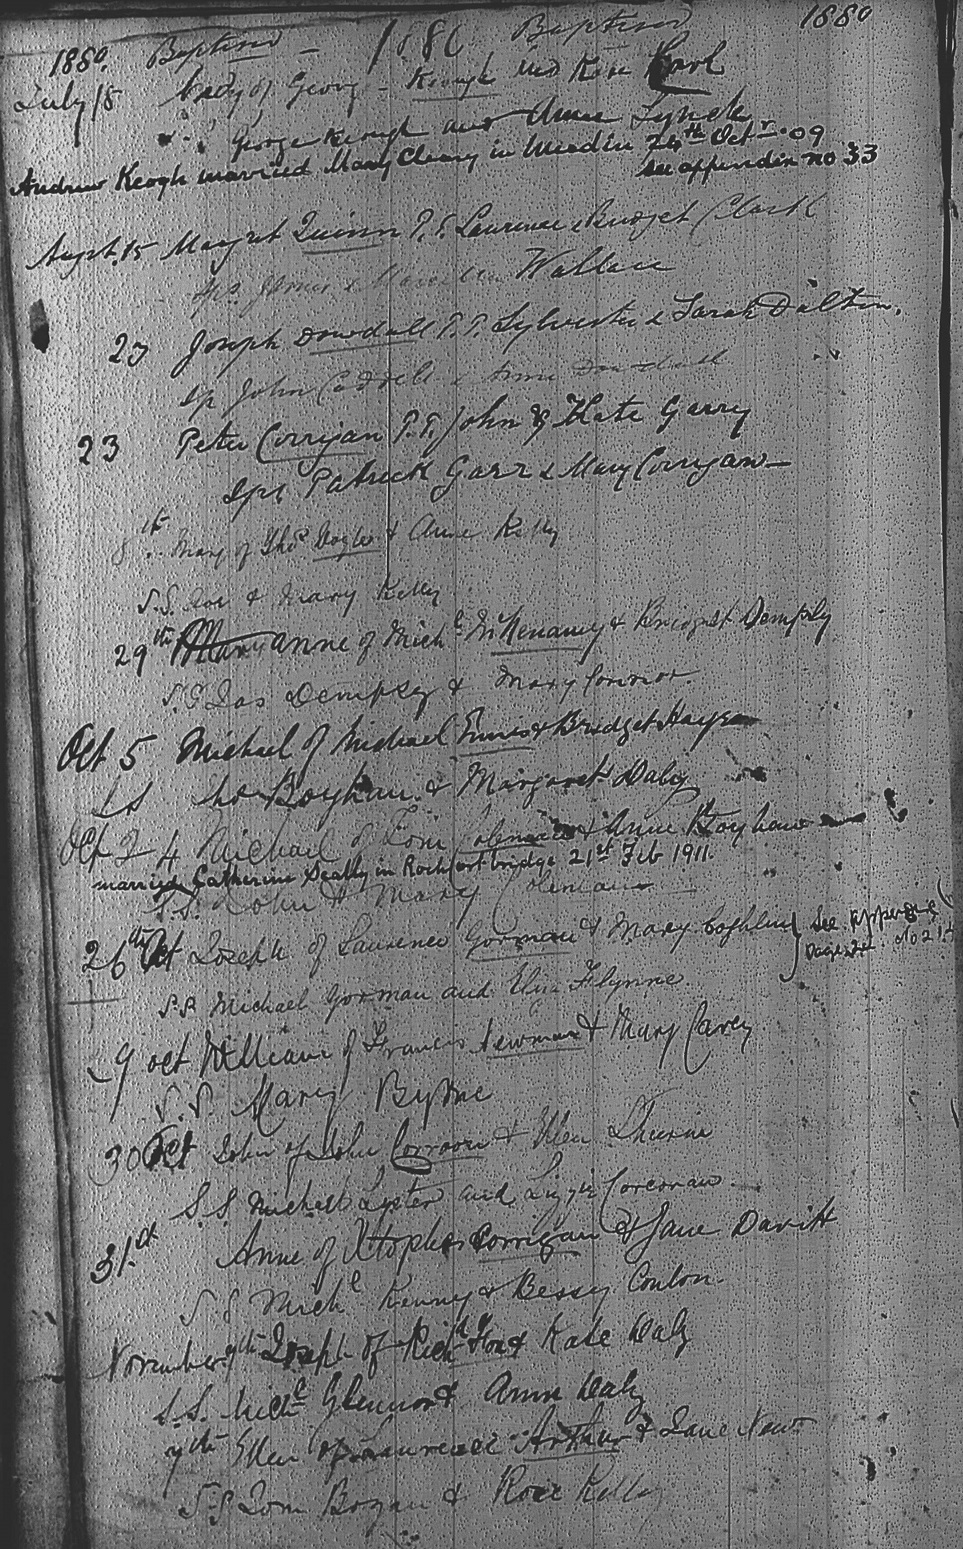 1880 Baptism - 1880 Baptism 1880
July 18 Andy of George Keough and Rose
George Keough and Anne Lynch
Andrew Keogh married Mary Cleary in 24th Octr 09
see appendix no 33
Augst. 15 Margret Quinn P.S. Laurence & Bridget Clark
Sps. James & Wallace
23 Joseph Dowdall P.P. Sylvester & Sarah Dalton.
Sp John & Anne Dowdall
23 Peter Corrigan P.P. John & Kate Garry
Sps Patrick Garr & Mary Corrigan
8th Mary of Thos & Anne Kelly
S.S. Jos & Mary Kelly
29th Mary Anne of Michl McKenaney & Bridget Dempsey
S.S Jas Dempsey & Mary Connor
Oct 5 Michael of Michael Ennis & Bridget Hayes
SS Tho Boyhan & Margaret Daly
Oct 24 Michael of Tom Coleman & Anne Boyhan
married Catherine Scally in Rochfortbridge 21st Feb 1911.
S.S. John & Mary Coleman
26th Oct Joseph of Laurence Gorman & Mary Coghlen } See appendix
No 215
S.S Michael Gorman and Eliza Flynne
29 oct William of Francis Newman & Mary Carey
S.S. Mary Byrne
30 Oct John of John & Ellen
S.S. Michell Lyster and Lizzie Corcoran
31.st Anne of Xtopher Corrigan & Jane Davitt
S.S Michl Kenny & Bessy Conlon.
November 7th Joseph of Richd Fox & Kate Daly
S.S. Michl Glennon & Anne Daly
7th Ellen of Laurence Arthur & Jane
S.S Tom Bogan & Rose Kelly